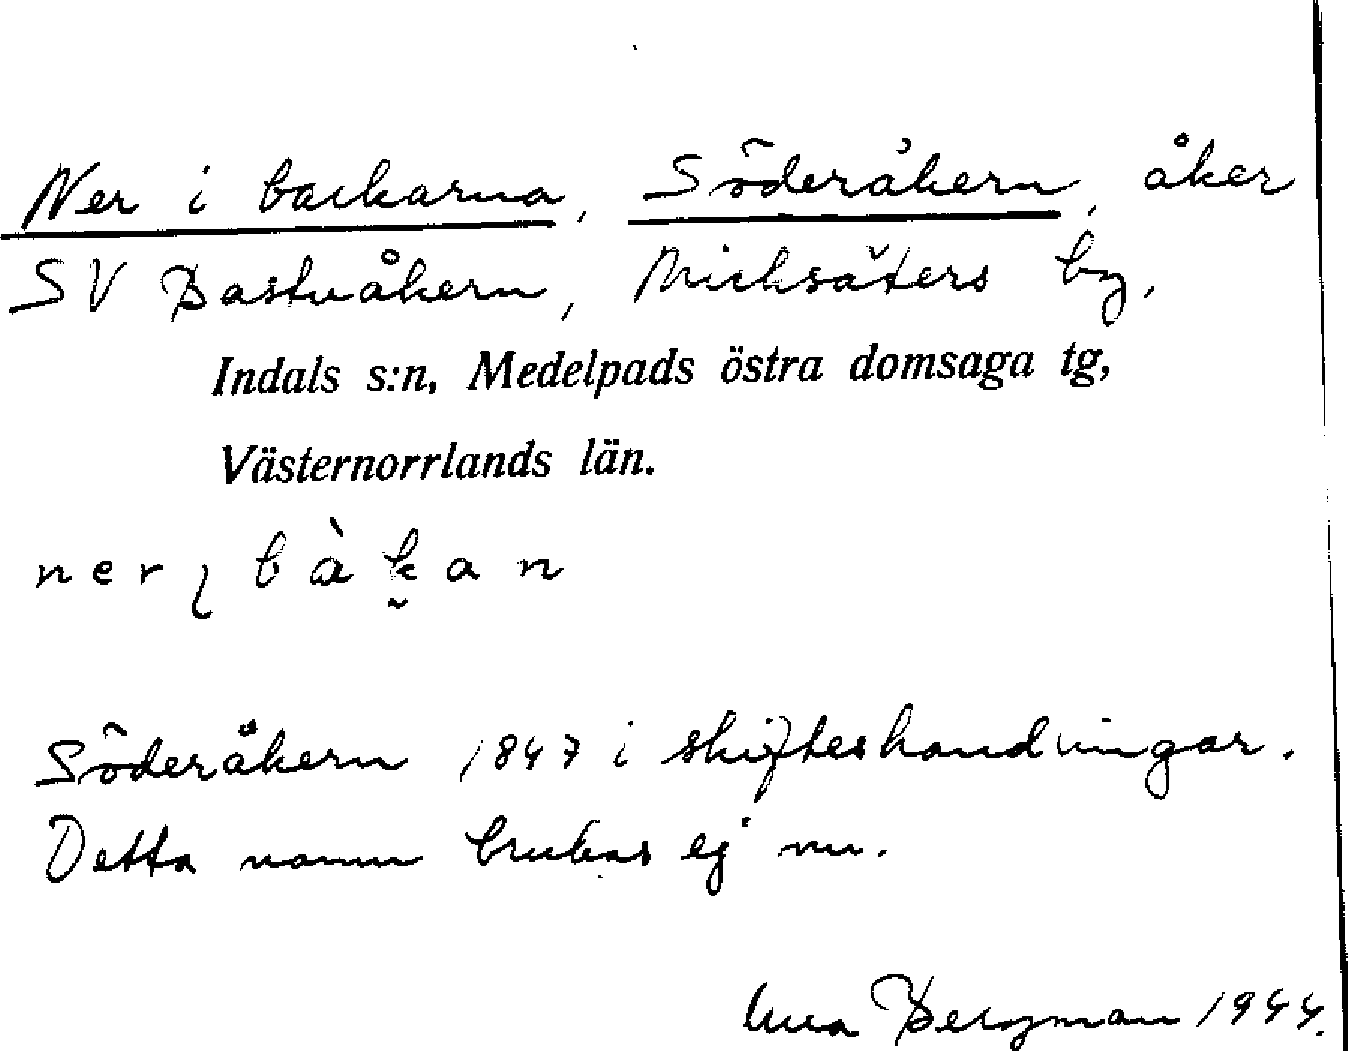 Ner i backarna, Söderåkern, åker
SV Bastuåkern, Micksäters by,
Indals s:n, Medelpads östra domsaga tg,
Västernorrlands län.
ner ɩ bàkan
Söderåkern 1847 i skifteshandlingar.
Detta namn brukas ej nu.
Bergman 1944.